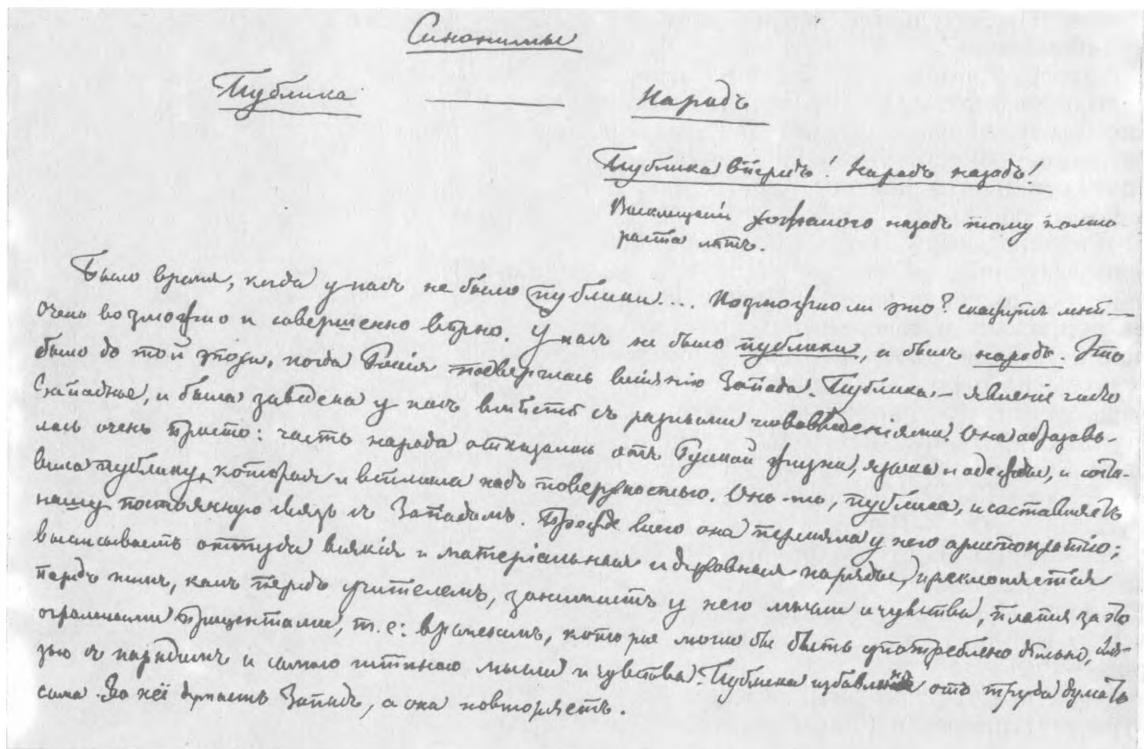 Синонимы
Публика — Народъ
Публика впередъ! Народъ назадъ!
Восклицаніе хожалаго народъ тому полто-
раста лѣтъ.
Было время, когда у насъ не было публики... Возможно ли это? скажутъ мнѣ. —
Очень возможно и совершенно вѣрно. У насъ не было публики, а былъ народъ. Это
было до той поры, когда Россія подверглась вліянію Запада. Публика — явленіе чисто
Западное, и была заведена у насъ вмѣстѣ съ разными нововведеніями. Она образова-
лась очень просто: часть народа отказалась отъ Русской жизни, языка и одежды, и соста-
вила публику, которая и всплыла надъ поверхностью. Она-то, публика, и составляетъ
нашу постоянную связь съ Западомъ. Прежде всего она переняла у него аристократію;
выписываетъ оттуда всякія и матеріальныя и духовныя наряды, преклоняется
передъ нимъ, какъ передъ учителемъ, занимаетъ у него мысли и чувства, платя за это
огромными процентами, т. е: временемъ, которое могло бы быть употреблено дѣльно, свя-
зью съ народомъ и самою истиною мысли и чувства. Публика избавлена отъ труда думать
сама. За неё думаетъ Западъ, а она повторяетъ.